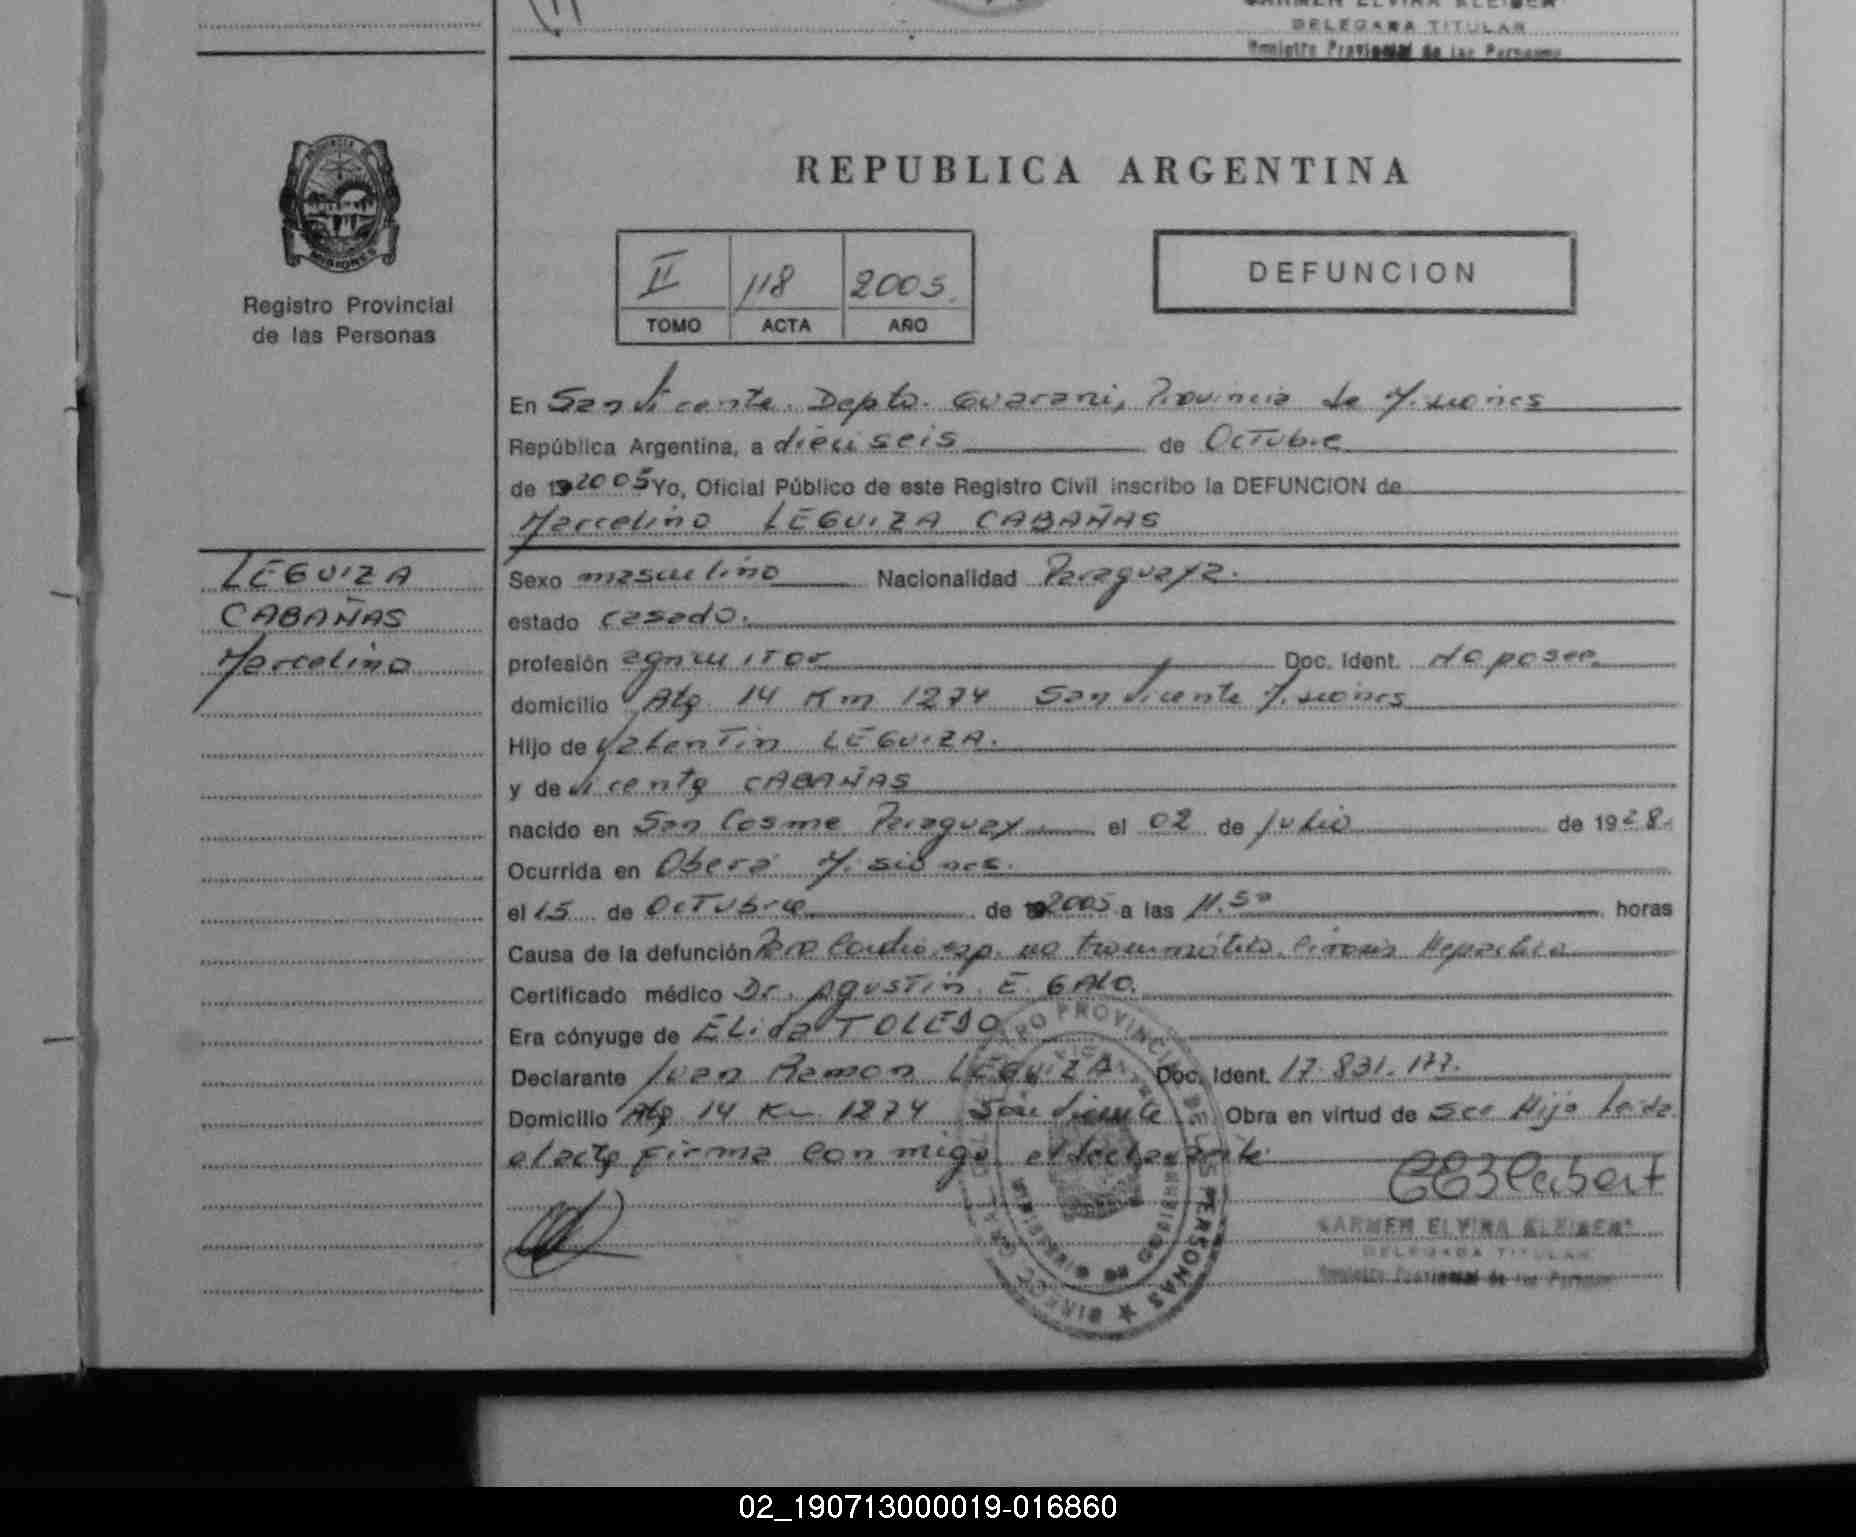 CARMEN ELVIRA KLEIBER
DELEGADA TITULAR
Registro Provincial de las Personas
PROVINCIA DE
MISIONES
Registro Provincial
de las Personas
REPUBLICA ARGENTINA
II 118 2005.
TOMO ACTA AÑO
DEFUNCION
En San Vicente. Depto. Guarani, Provincia de Misiones
República Argentina, a dieciseis de Octubre
de 19 2005 Yo, Oficial Público de este Registro Civil inscribo la DEFUNCION de
Marcelino LEGUIZA CABAÑAS
LEGUIZA
CABAÑAS
Marcelino
Sexo masculino Nacionalidad Paraguaya.
estado casado.
profesión agricultor Doc. Ident. No posee.
domicilio 14 Km 1274 San Vicente Misiones
Hijo de Valentin LEGUIZA.
y de Vicenta CABAÑAS
nacido en San Cosme Paraguay el 02 de Julio de 1928.
Ocurrida en Oberá Misiones.
el 15 de Octubre de 2005 a las 11.50 horas
Causa de la defunción Paro Cardio resp. no traumático. Cirrosis Hepatica
Certificado médico Dr. Agustin E. GALO.
Era cónyuge de ELida TOLEDO
Declarante Juan Ramon LEGUIZA. Doc. Ident. 17.831.177.
Domicilio 14 Km 1274 San Vicente Obra en virtud de ser Hijo Leida
el acta firma conmigo el declarante
REGISTRO PROVINCIAL DE LAS PERSONAS ★
MINISTERIO DE GOBIERNO
CARMEN ELVIRA KLEIBER
DELEGADA TITULAR
Registro Provincial de las Personas
02_190713000019-016860